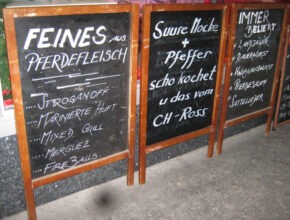 FEINES AUS
PFERDEFLEISCH
STROGANOFF
MARINIERTE HUFT
MIXED GRILL
MERGUEZ
FIREBALLS
Suure Mocke
+
Pfeffer
scho kochet
u das vom
CH-ROSS
IMMER
BELIEBT
LANDJÄGER
SATTELLEBER